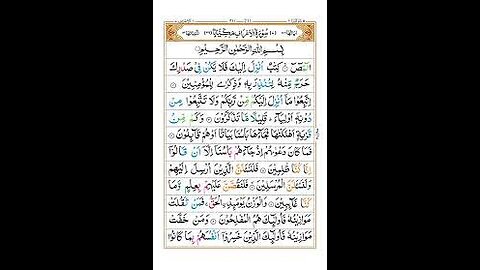 سُوْرَةُ الْاَعْرَافِ مَكِّيَّةٌ
بِسْمِ اللّٰهِ الرَّحْمٰنِ الرَّحِيْمِ
الٓمّٓصٓ ۚ كِتٰبٌ اُنْزِلَ اِلَيْكَ فَلَا يَكُنْ فِيْ صَدْرِكَ
حَرَجٌ مِّنْهُ لِتُنْذِرَ بِهٖ وَذِكْرٰى لِلْمُؤْمِنِيْنَ
اِتَّبِعُوْا مَاۤ اُنْزِلَ اِلَيْكُمْ مِّنْ رَّبِّكُمْ وَلَا تَتَّبِعُوْا مِنْ
دُوْنِهٖۤ اَوْلِيَآءَ ؕ قَلِيْلًا مَّا تَذَكَّرُوْنَ وَكَمْ مِّنْ
قَرْيَةٍ اَهْلَكْنٰهَا فَجَآءَهَا بَاْسُنَا بَيَاتًا اَوْ هُمْ قَآئِلُوْنَ
فَمَا كَانَ دَعْوٰىهُمْ اِذْ جَآءَهُمْ بَاْسُنَاۤ اِلَّاۤ اَنْ قَالُوْۤا
اِنَّا كُنَّا ظٰلِمِيْنَ فَلَنَسْـَٔلَنَّ الَّذِيْنَ اُرْسِلَ اِلَيْهِمْ
وَلَنَسْـَٔلَنَّ الْمُرْسَلِيْنَ فَلَنَقُصَّنَّ عَلَيْهِمْ بِعِلْمٍ وَّمَا
كُنَّا غَآئِبِيْنَ وَالْوَزْنُ يَوْمَئِذِ ࣙالْحَقُّ ۚ فَمَنْ ثَقُلَتْ
مَوَازِيْنُهٗ فَاُولٰٓئِكَ هُمُ الْمُفْلِحُوْنَ وَمَنْ خَفَّتْ
مَوَازِيْنُهٗ فَاُولٰٓئِكَ الَّذِيْنَ خَسِرُوْۤا اَنْفُسَهُمْ بِمَا كَانُوْا